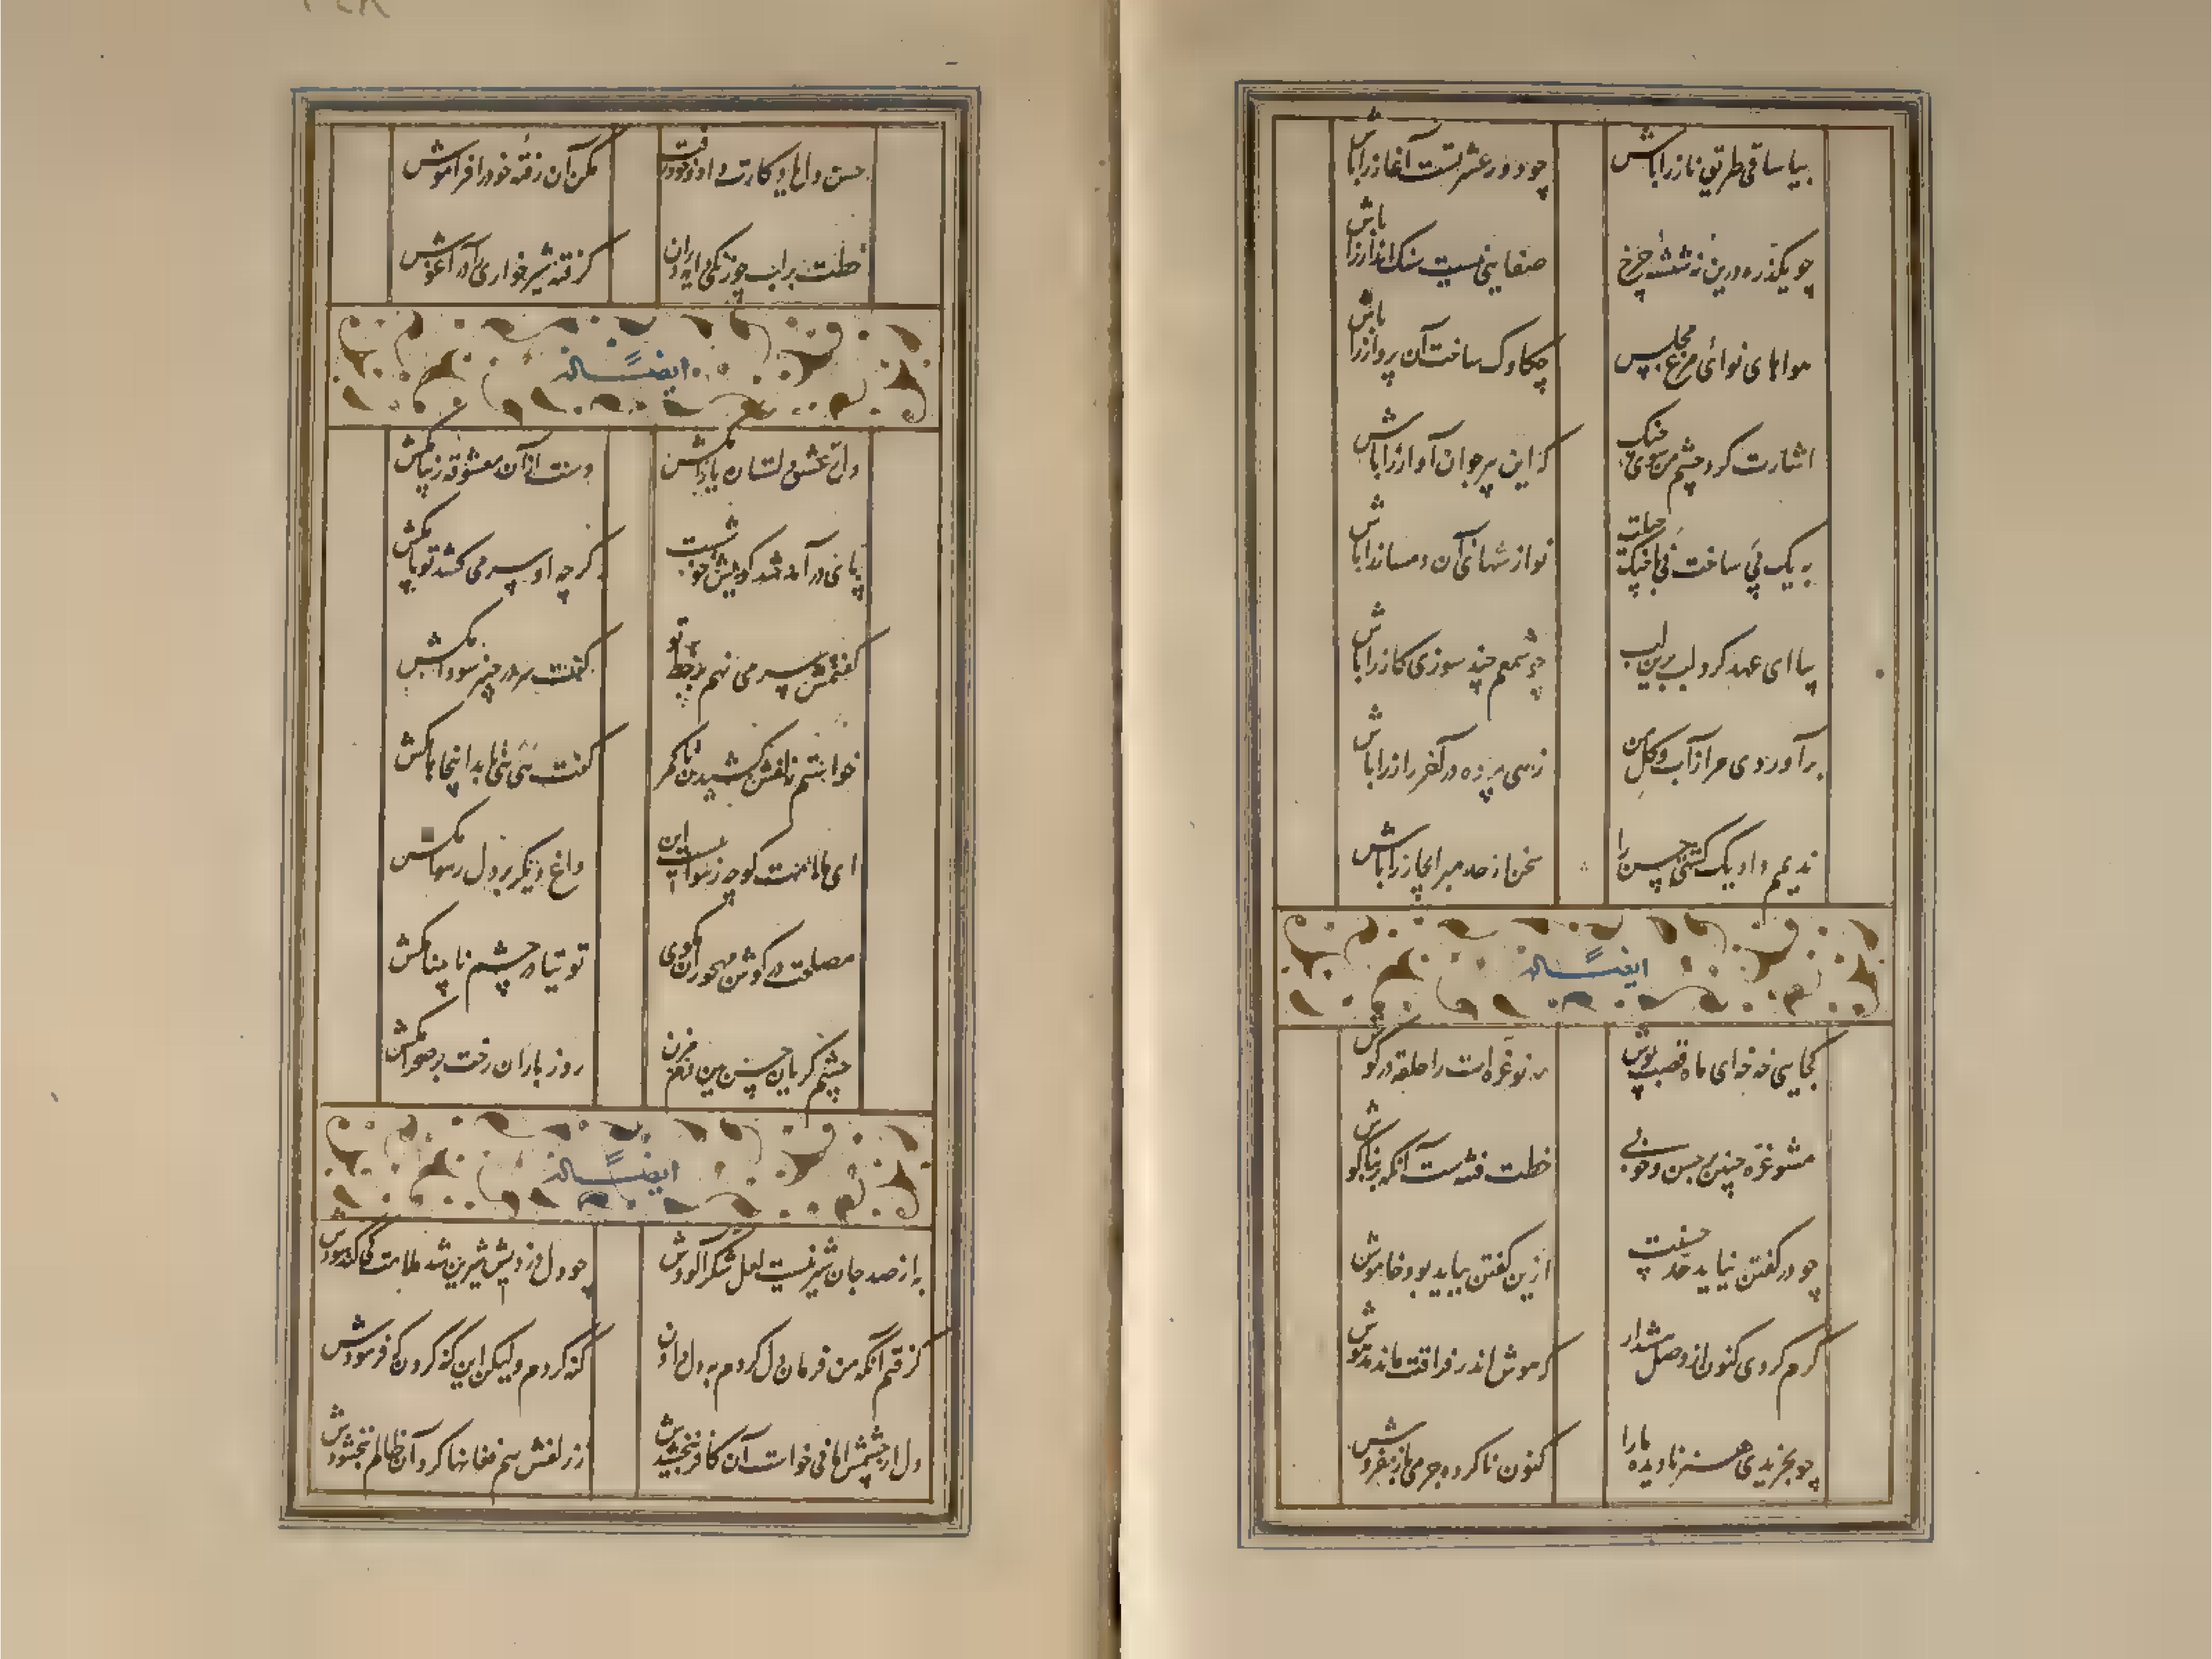 بیا ساقی طریق ناز را باش
چو دور عشرتست آغاز را باش
چو یکذره درین نه شیشه چرخ
صفایی نیست سنک انداز را باش
نوائی مرغ مجلس
چکاوک ساخت آن پرواز را باش
اشارت کرد چشم من سوی چنک
که این پیر جوان آواز را باش
به یک پی ساخت نی با چنک
نوازشهای آن دمساز را باش
بیا ای عهد کرده لب برین لب
چو شمع چند سوزی کاز را باش
برآوردی مرا از آب و کل من
زهی پرده در آخر راز را باش
ندیمم داد یک کشتی حسن را
سخن از حد مبر ایجاز را باش
ایضاً له
کجایی خه خه ای ماه قصب پوش
مه نو غره‌ات را حلقه در کوش
مشو غره چنین بر حسن و خوبی
خطت فتنه‌ست آنکه بر بناکوش
چو در کفتن نیاید حد حسنت
ازین کفتن بباید بود خاموش
کرم کردی کنون از وصل
که هوش اندر فراقت ماند مدهوش
چو بخریدی هنر نادیده ما را
کنون ناکرده جرمی باز مفروش
حسن دل با تو کارت داد و خود رفت
مکن آن رفته خود را فراموش
خطت بر لب چو زنکی دایه دران
کرفته شیرخواری را در آغوش
ایضاً له
دل ز عشق دلستان باز مکش
دست از آن معشوقه زیبا مکش
پای در آمد شد کویش خوشست
کرچه او سر می کشد تو پا مکش
کفتمش سر می نهم بر خط تو
کفت سر در چنبر سودا مکش
خواستم زلفش کشیدن ناکهر
کفت نی نی ها بدانجا پا مکش
ای ملامت کو چه رسوائیست این
داغ دیکر بر دل رسوا مکش
مصلحت در کوش مهجوران مکوی
توتیا در چشم نابینا مکش
چشم کریان حسن بین دم مزن
روز باران رخت بر صحرا مکش
ایضاً له
به از صد جان شیرینست لعل شکرآلودش
چو دل فرزدیش شیرین شد ملامت کی کند سودش
کرفتم آنکه من فرمان دل کردم به دل دادن
کنه کردم ولیکن این کنه کردن که فرمودش
دل از چشمش امانی خواست آن کافر نبخشیدش
ز زلفش هم فغانها کرد آن ظالم نبخشودش